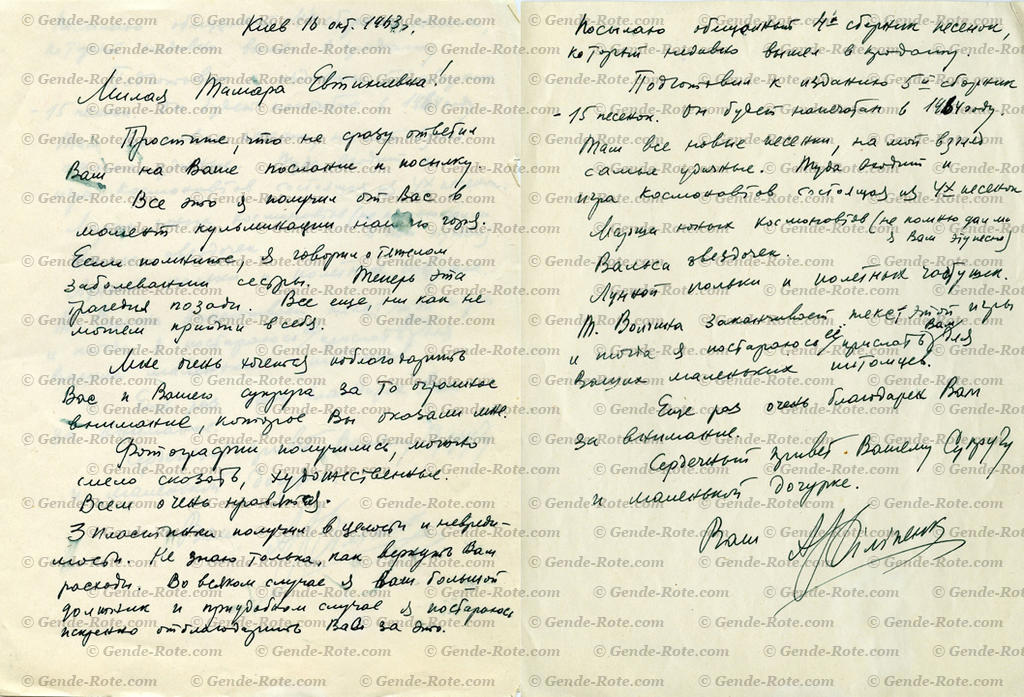 Киев 16 окт. 1963 г.
Милая Тамара Евтихиевна!
Простите, что не сразу ответил
Вам на Ваше послание и посылку.
Все это я получил от Вас в
момент кульминации нашего горя.
Если помните, я говорил о тяжелом
заболевании сестры. Теперь эта
трагедия позади. Все еще, ни как не
можем прийти в себя.
Мне очень хочется поблагодарить
Вас и Вашего супруга за то огромное
внимание, которое Вы оказали мне.
Фотографии получились, можно
смело сказать, художественные.
Всем очень нравятся.
3 пластинки получил в целости и невреди-
мости. Не знаю только, как вернуть Вам
расходы. Во всяком случае я Ваш большой
должник и при удобном случае я постараюсь
искренно отблагодарить Вас за это.
Посылаю обещанный 4й сборник песенок,
который недавно вышел в продажу.
Подготовил к изданию 5й сборник
- 15 песенок. Он будет напечатан в 1964 году.
Там все новые песенки, на мой взгляд
самые удачные. Туда входит и
игра космонавтов состоящая из 4х песенок
Марша юных космонавтов (не помню дал ли
я Вам эту песню)
Вальса звездочек.
Лунной польки и полетных частушек.
Т. Волгина заканчивает текст этой игры
и тогда я постараюсь её прислать Вам для
Ваших маленьких питомцев.
Еще раз очень благодарен Вам
за внимание.
Сердечный привет Вашему Супругу
и маленькой дочурке.
Ваш А Филіпенко
© Gende-Rote.com